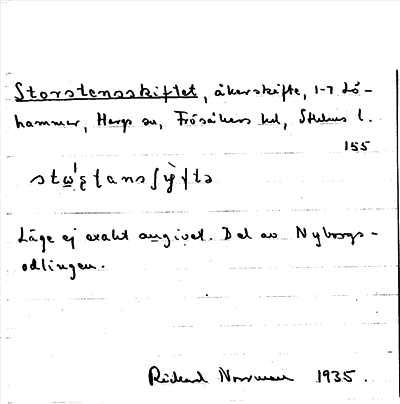 Storstensskiftet, åkerskifte, 1-7 Lå-
hammar, Hargs sn, Frösåkers hd, Sthlms l.
155
Läge ej exakt angivet. Del av Nyborgs-
odlingen.
Rickard Norrman 1935.